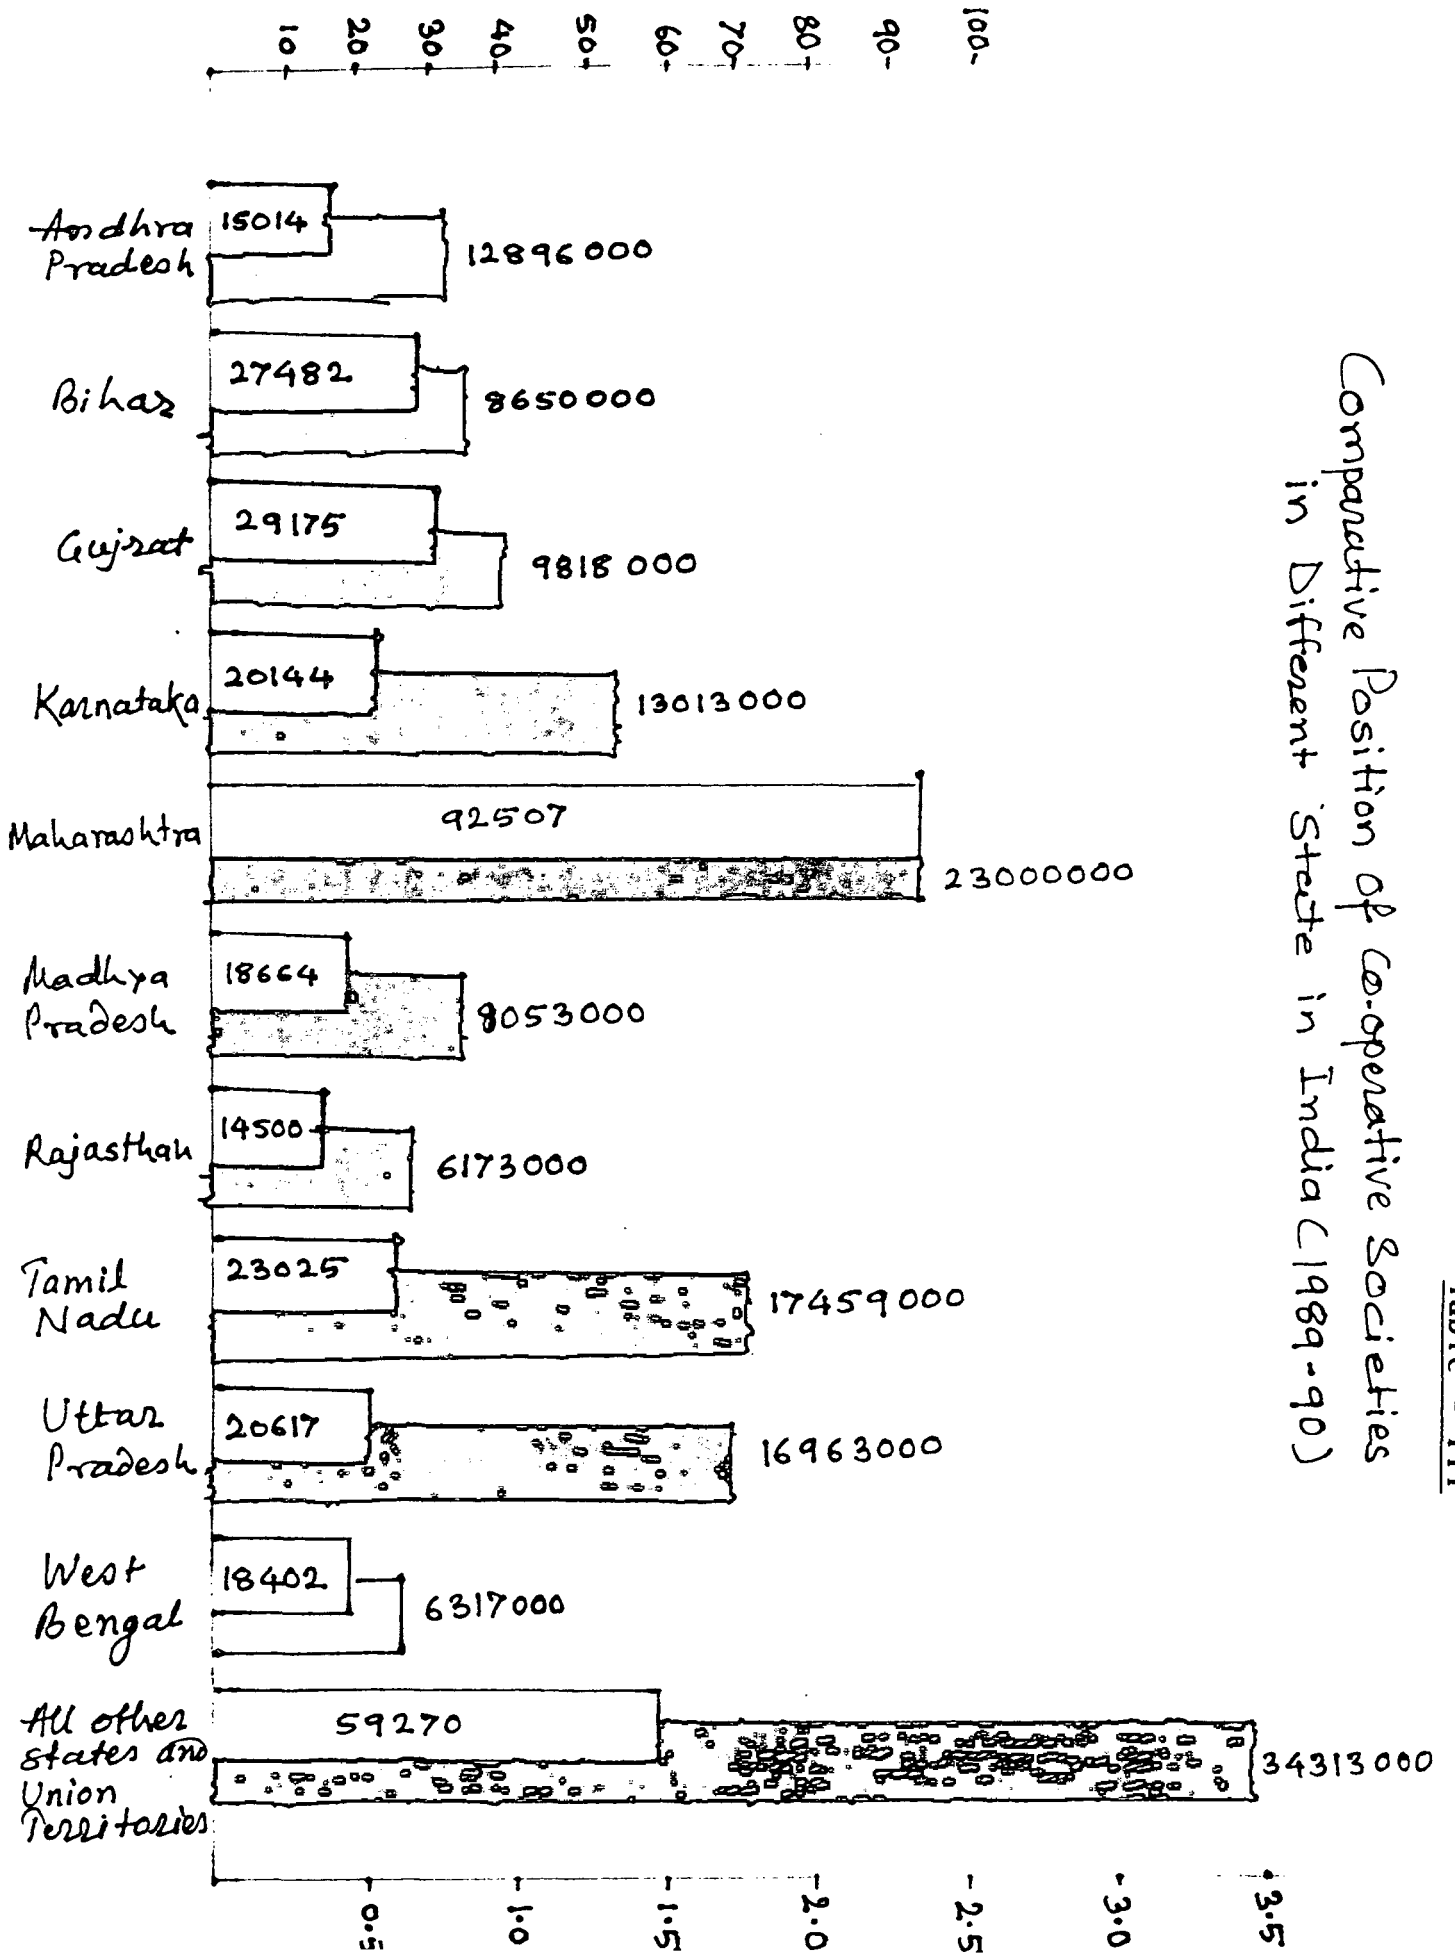 Comparative Position of Co-operative Societies
in Different State in India (1989-90)
10 20 30 40 50 60 70 80 90 100
Andhra
Pradesh
15014
12896000
Bihar
27482
8650000
Gujrat
29175
9818000
Karnataka
20144
13013000
Maharashtra
92507
23000000
Madhya
Pradesh
18664
8053000
Rajasthan
14500
6173000
Tamil
Nadu
23025
17459000
Uttar
Pradesh
20617
16963000
West
Bengal
18402
6317000
All other
states and
Union
Territories
59270
34313000
0.5 1.0 1.5 2.0 2.5 3.0 3.5